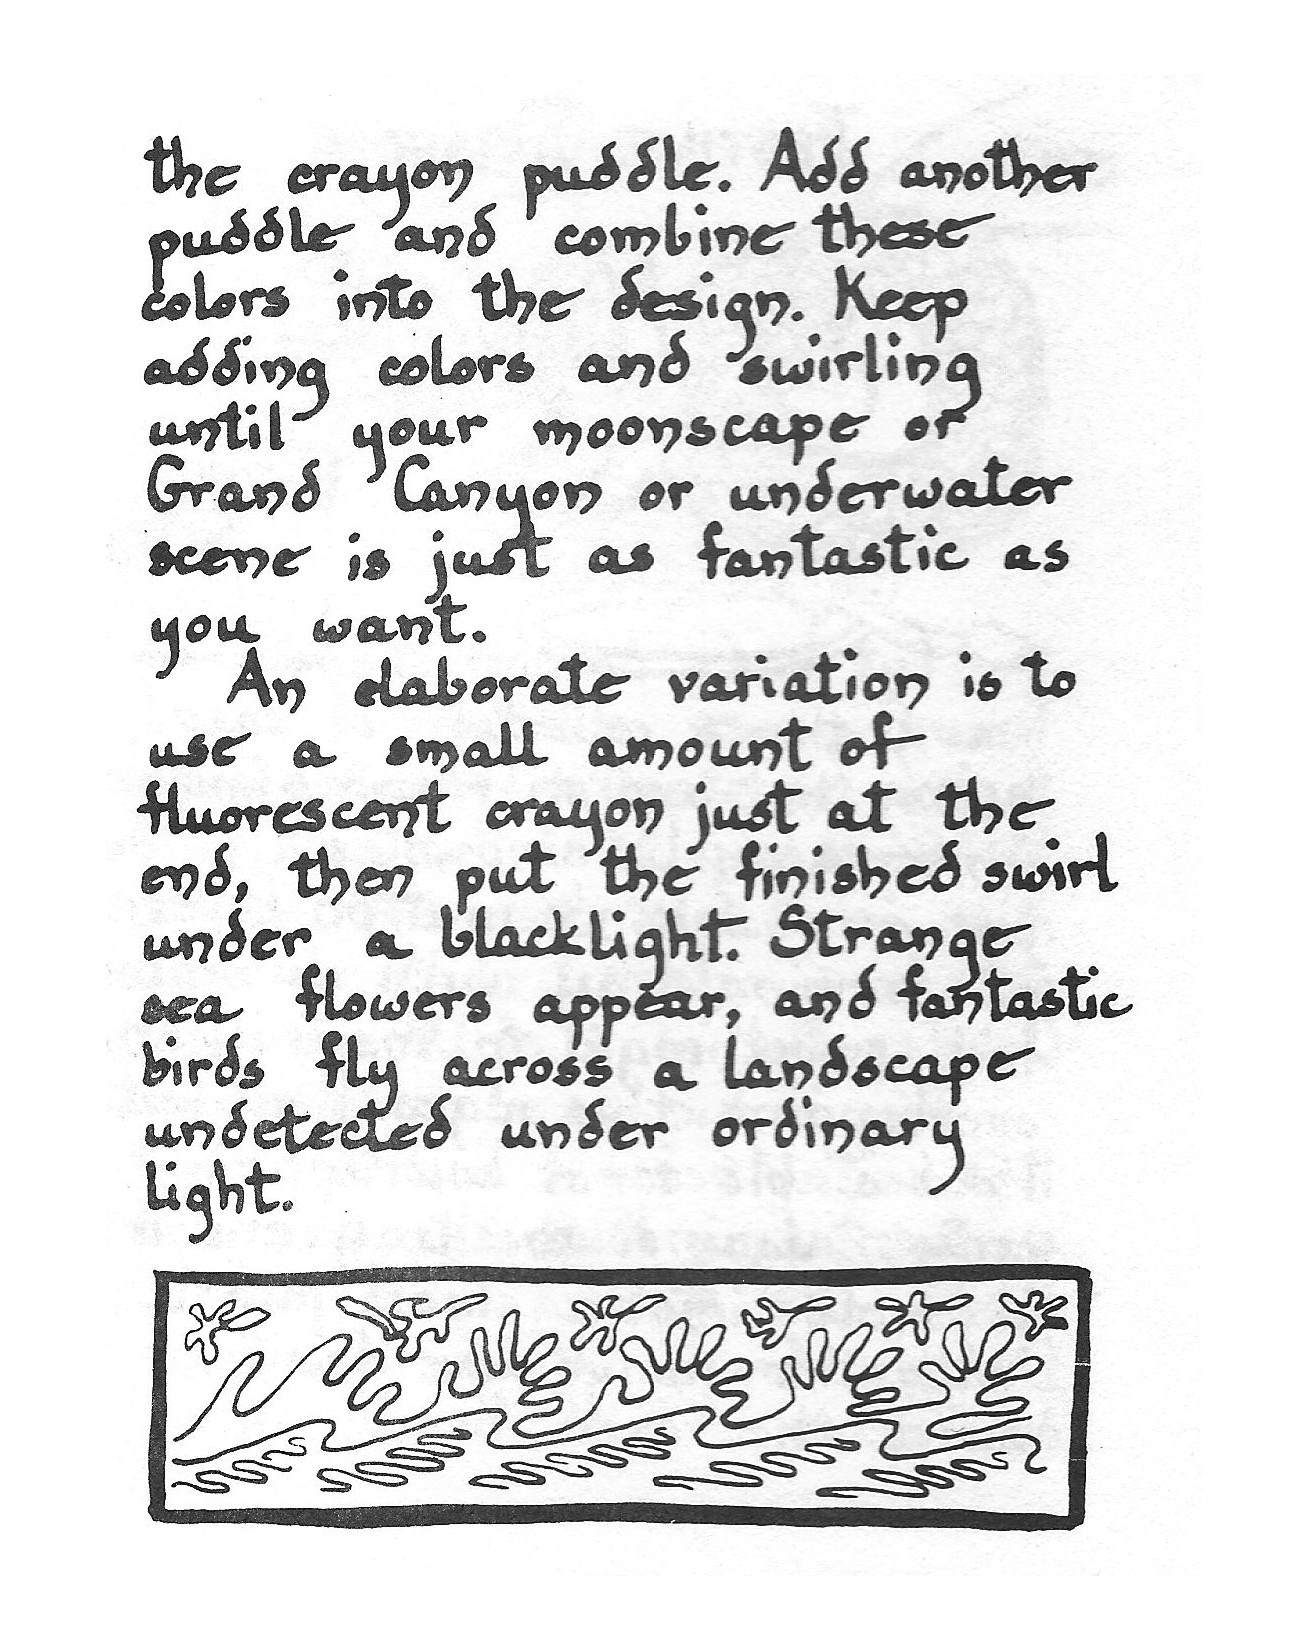 the crayon puddle. Add another
puddle and combine these
colors into the design. Keep
adding colors and swirling
until your moonscape or
Grand Canyon or underwater
scene is just as fantastic as
you want.
An elaborate variation is to
use a small amount of
fluorescent crayon just at the
end, then put the finished swirl
under a blacklight. Strange
sea flowers appear, and fantastic
birds fly across a landscape
undetected under ordinary
light.